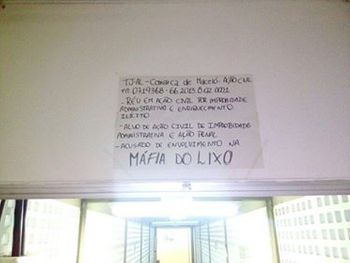 TJ-AL - Comarca de Maceió. AÇÃO CIVIL
nº 0719368-66.2013.8.02.0001
- RÉU EM AÇÃO CIVIL POR IMPROBIDADE
ADMINISTRATIVA E ENRIQUECIMENTO
ILÍCITO
- ALVO DE AÇÃO CIVIL DE IMPROBIDADE
ADMINISTRATIVA E AÇÃO PENAL
- ACUSADO DE ENVOLVIMENTO NA
MÁFIA DO LIXO